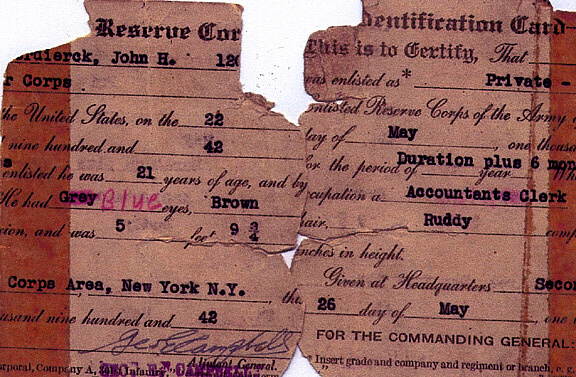 Reserve Cor dentification Card
erdierck, John H. 120 This is to Certify, That
r Corps was enlisted as* Private -
the United States, on the 22 nlisted Reserve Corps of the Army o
nine hundred and 42 day of May , one thousa
enlisted he was 21 years of age, and by for the period of Duration plus 6 mon year
He had Grey Blue eyes, Brown cupation a Accountants Clerk
xion, and was 5 feet 9 3/4 hair, Ruddy comp
inches in height.
Given at Headquarters Secon
Corps Area, New York N.Y. , this 26 day of May , one
usand nine hundred and 42
FOR THE COMMANDING GENERAL:
Adjutant General.
orporal, Company A, Infantry, * Insert grade and company and regiment or branch, e. g.